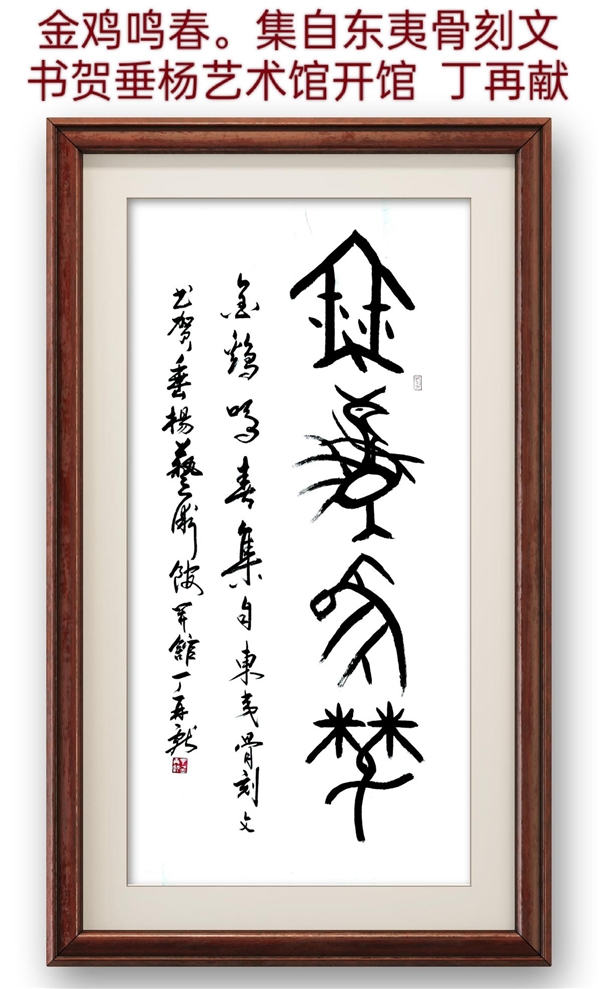 金鸡鸣春。集自东夷骨刻文
书贺垂杨艺术馆开馆 丁再献
金鷄鸣春
金鷄鸣春集自東夷骨刻文
书贺垂楊藝術館開館丁再献